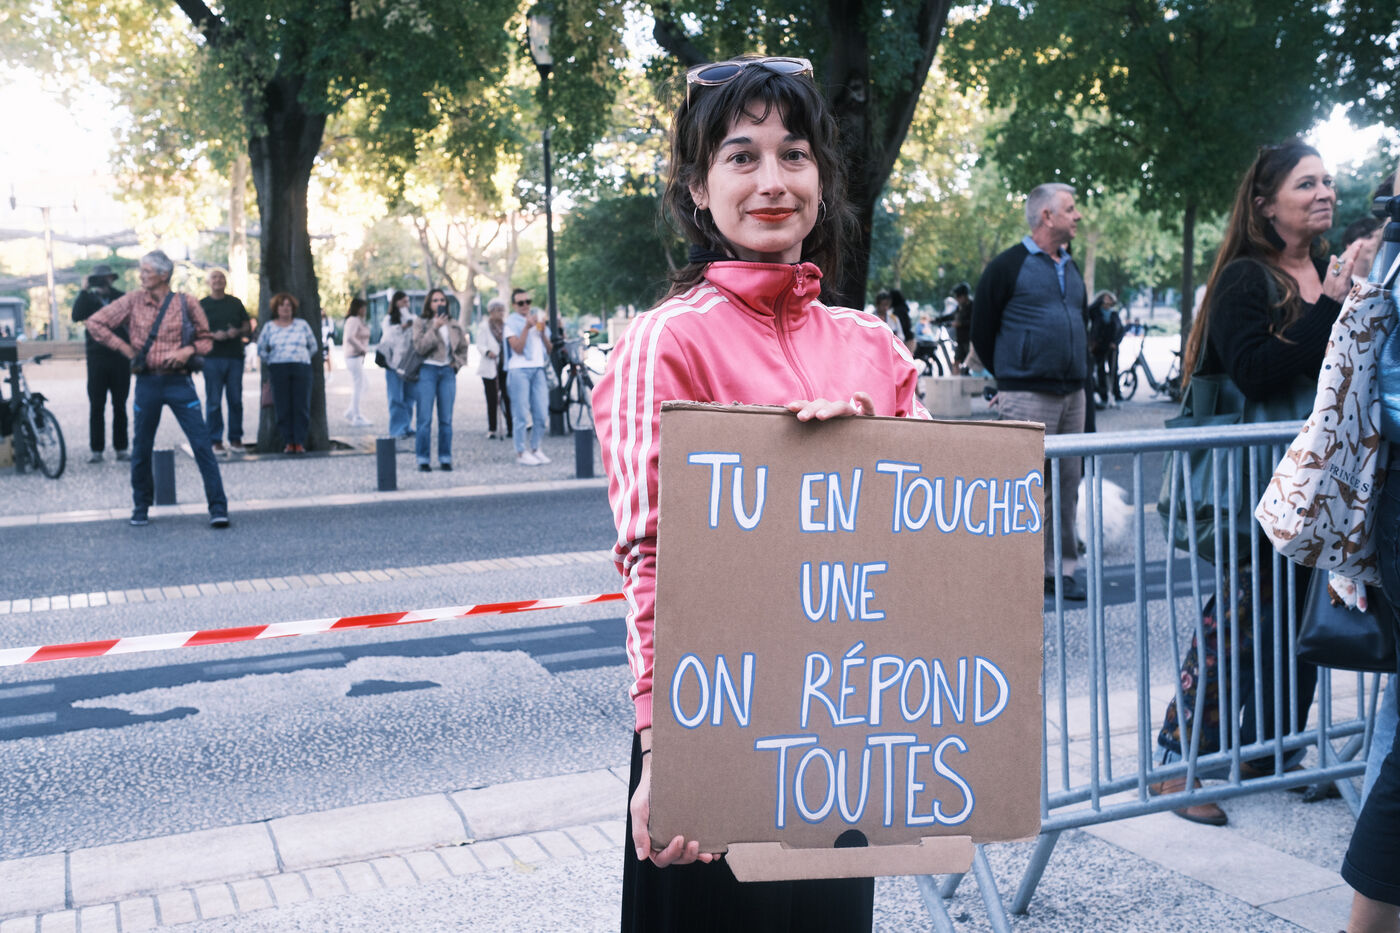 TU EN TOUCHES
UNE
ON RÉPOND
TOUTES
PRINCES